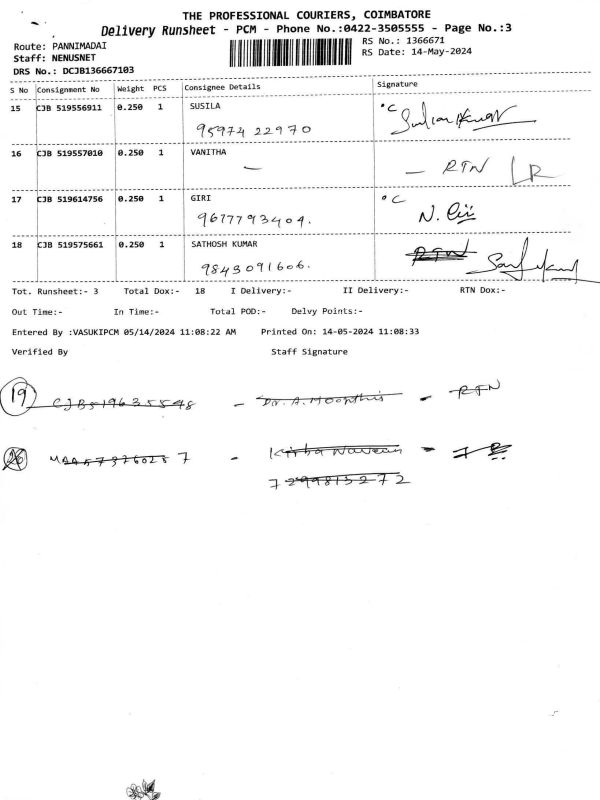 THE PROFESSIONAL COURIERS, COIMBATORE
Delivery Runsheet - PCM - Phone No.:0422-3505555 - Page No.:3
Route: PANNIMADAI
RS No.: 1366671
Staff: NENUSNET
RS Date: 14-May-2024
DRS No.: DCJB136667103
S No Consignment No Weight PCS Consignee Details Signature
15 CJB 519556911 0.250 1 SUSILA °C
95974 22970
16 CJB 519557010 0.250 1 VANITHA
— — RTN LR
17 CJB 519614756 0.250 1 GIRI °C
9677793404. N.
18 CJB 519575661 0.250 1 SATHOSH KUMAR RTN
9843091606.
Tot. Runsheet:- 3 Total Dox:- 18 I Delivery:- II Delivery:- RTN Dox:-
Out Time:- In Time:- Total POD:- Delvy Points:-
Entered By :VASUKIPCM 05/14/2024 11:08:22 AM Printed On: 14-05-2024 11:08:33
Verified By Staff Signature
19 CJB519635548 - Dr. A. - RTN
7 - Kirba Naveen -
7299813272